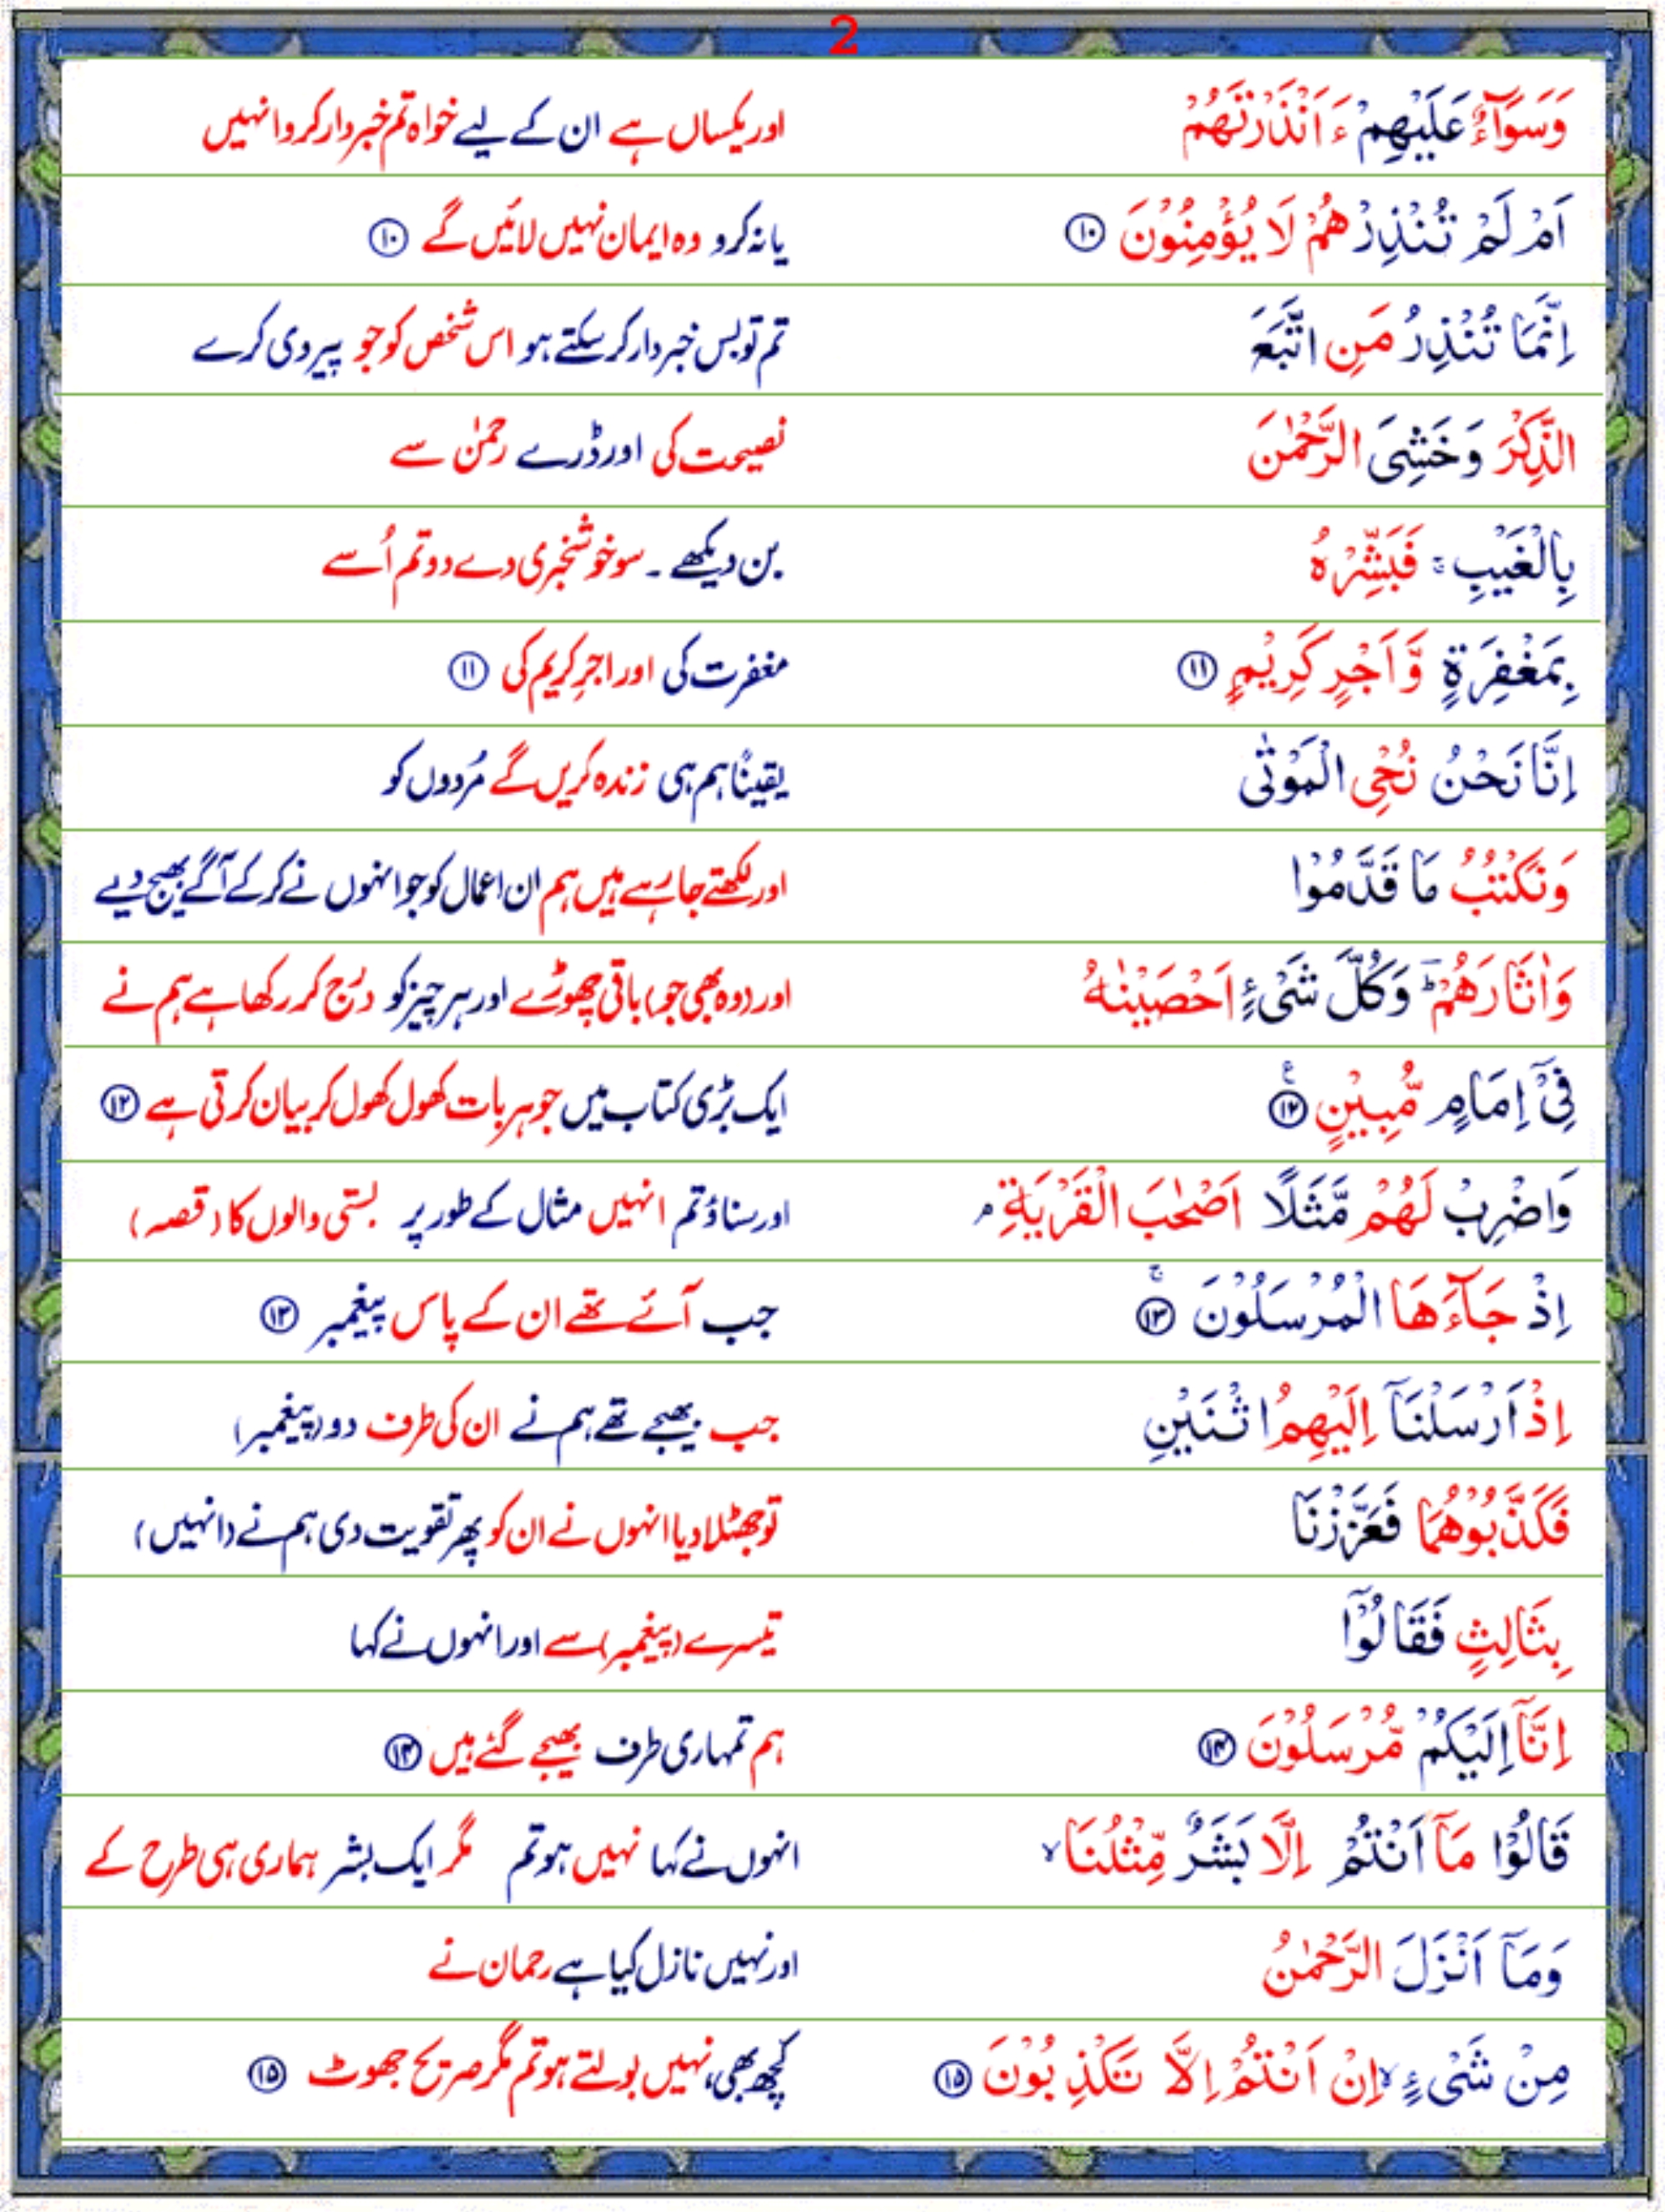 2
وَسَوَآءٌ عَلَيْهِمْ ءَاَنْذَرْتَهُمْ اور یکساں ہے ان کے لیے خواہ تم خبردار کرو انہیں
اَمْ لَمْ تُنْذِرْهُمْ لَا يُؤْمِنُوْنَ ۝۱۰ یا نہ کرو وہ ایمان نہیں لائیں گے ۝۱۰
اِنَّمَا تُنْذِرُ مَنِ اتَّبَعَ تم تو بس خبردار کر سکتے ہو اس شخص کو جو پیروی کرے
الذِّكْرَ وَخَشِىَ الرَّحْمٰنَ نصیحت کی اور ڈرے رحمٰن سے
بِالْغَيْبِ ۚ فَبَشِّرْهُ بن دیکھے ۔ سو خوشخبری دے دو تم اُسے
بِمَغْفِرَةٍ وَّاَجْرٍ كَرِيْمٍ ۝۱۱ مغفرت کی اور اجرِ کریم کی ۝۱۱
اِنَّا نَحْنُ نُحْىِ الْمَوْتٰى یقیناً ہم ہی زندہ کریں گے مُردوں کو
وَنَكْتُبُ مَا قَدَّمُوْا اور لکھتے جا رہے ہیں ہم ان اعمال کو جو انہوں نے کر کے آگے بھیج دیے
وَاٰثَارَهُمْ ؕ وَكُلَّ شَىْءٍ اَحْصَيْنٰهُ اور (وہ بھی جو) باقی چھوڑے اور ہر چیز کو درج کر رکھا ہے ہم نے
فِىْٓ اِمَامٍ مُّبِيْنٍ ۝۱۲ ع ایک بڑی کتاب میں جو ہر بات کھول کھول کر بیان کرتی ہے ۝۱۲
وَاضْرِبْ لَهُمْ مَّثَلًا اَصْحٰبَ الْقَرْيَةِ ۘ اور سناؤ تم انہیں مثال کے طور پر بستی والوں کا (قصہ)
اِذْ جَآءَهَا الْمُرْسَلُوْنَ ۚ ۝۱۳ جب آئے تھے ان کے پاس پیغمبر ۝۱۳
اِذْ اَرْسَلْنَآ اِلَيْهِمُ اثْنَيْنِ جب بھیجے تھے ہم نے ان کی طرف دو (پیغمبر)
فَكَذَّبُوْهُمَا فَعَزَّزْنَا تو جھٹلا دیا انہوں نے ان کو پھر تقویت دی ہم نے (انہیں)
بِثَالِثٍ فَقَالُوْٓا تیسرے (پیغمبر) سے اور انہوں نے کہا
اِنَّآ اِلَيْكُمْ مُّرْسَلُوْنَ ۝۱۴ ہم تمہاری طرف بھیجے گئے ہیں ۝۱۴
قَالُوْا مَآ اَنْتُمْ اِلَّا بَشَرٌ مِّثْلُنَا ۙ انہوں نے کہا نہیں ہو تم مگر ایک بشر ہماری ہی طرح کے
وَمَآ اَنْزَلَ الرَّحْمٰنُ اور نہیں نازل کیا ہے رحمان نے
مِنْ شَىْءٍ ۙ اِنْ اَنْتُمْ اِلَّا تَكْذِبُوْنَ ۝۱۵ کچھ بھی، نہیں بولتے ہو تم مگر صریح جھوٹ ۝۱۵